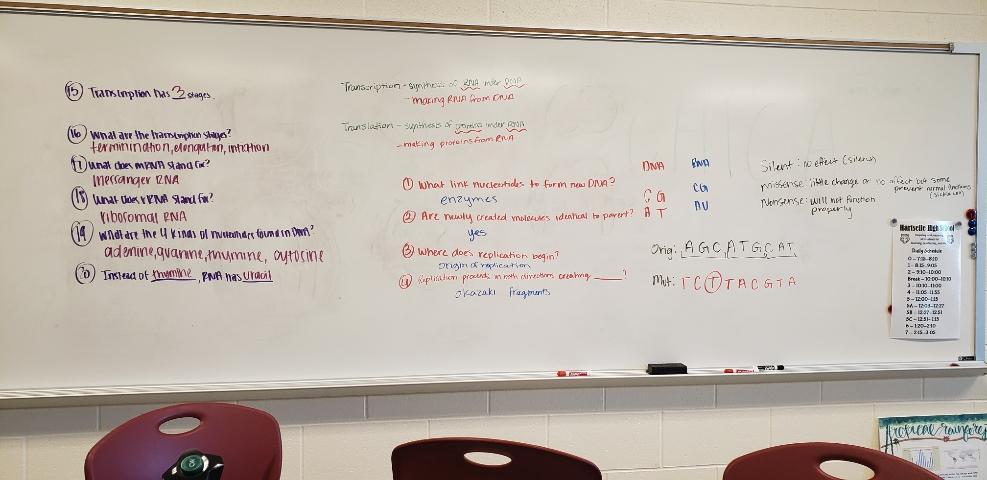 15 Transcription has 3 stages.
16 What are the transcription stages?
termination, elongation, initiation
17 What does mRNA stand for?
Messanger RNA
18 What does rRNA stand for?
Ribosomal RNA
19 What are the 4 kinds of found in DNA?
adenine, guanine, thymine, cytosine
20 Instead of thymine, RNA has Uracil
Transcription - synthesis of RNA under DNA
- making RNA from DNA
Translation - synthesis of proteins under RNA
- making proteins from RNA
1 What link nucleotides to form new DNA?
enzymes
2 Are newly created molecules identical to parent?
yes
3 Where does replication begin?
origin of replication
4 Replication proceeds in both directions creating ____?
okazaki fragments
DNA RNA
CG CG
AT AU
Orig: AGCATGCAT
Mut: TCTTACGTA
Silent: no effect (silence)
Missense: little change or no affect but some
prevent normal functions
(sickle cell)
Nonsense: will not function
properly
Hartselle High School
Daily Schedule
0 - 7:13-8:10
1 - 8:15-9:05
2 - 9:10-10:00
Break - 10:00-10:10
3 - 10:10-11:00
4 - 11:05-11:55
5 - 12:00-1:15
5A - 12:03-12:27
5B - 12:27-12:51
5C - 12:51-1:15
6 - 1:20-2:10
7 - 2:15-3:05
Tropical rainforest